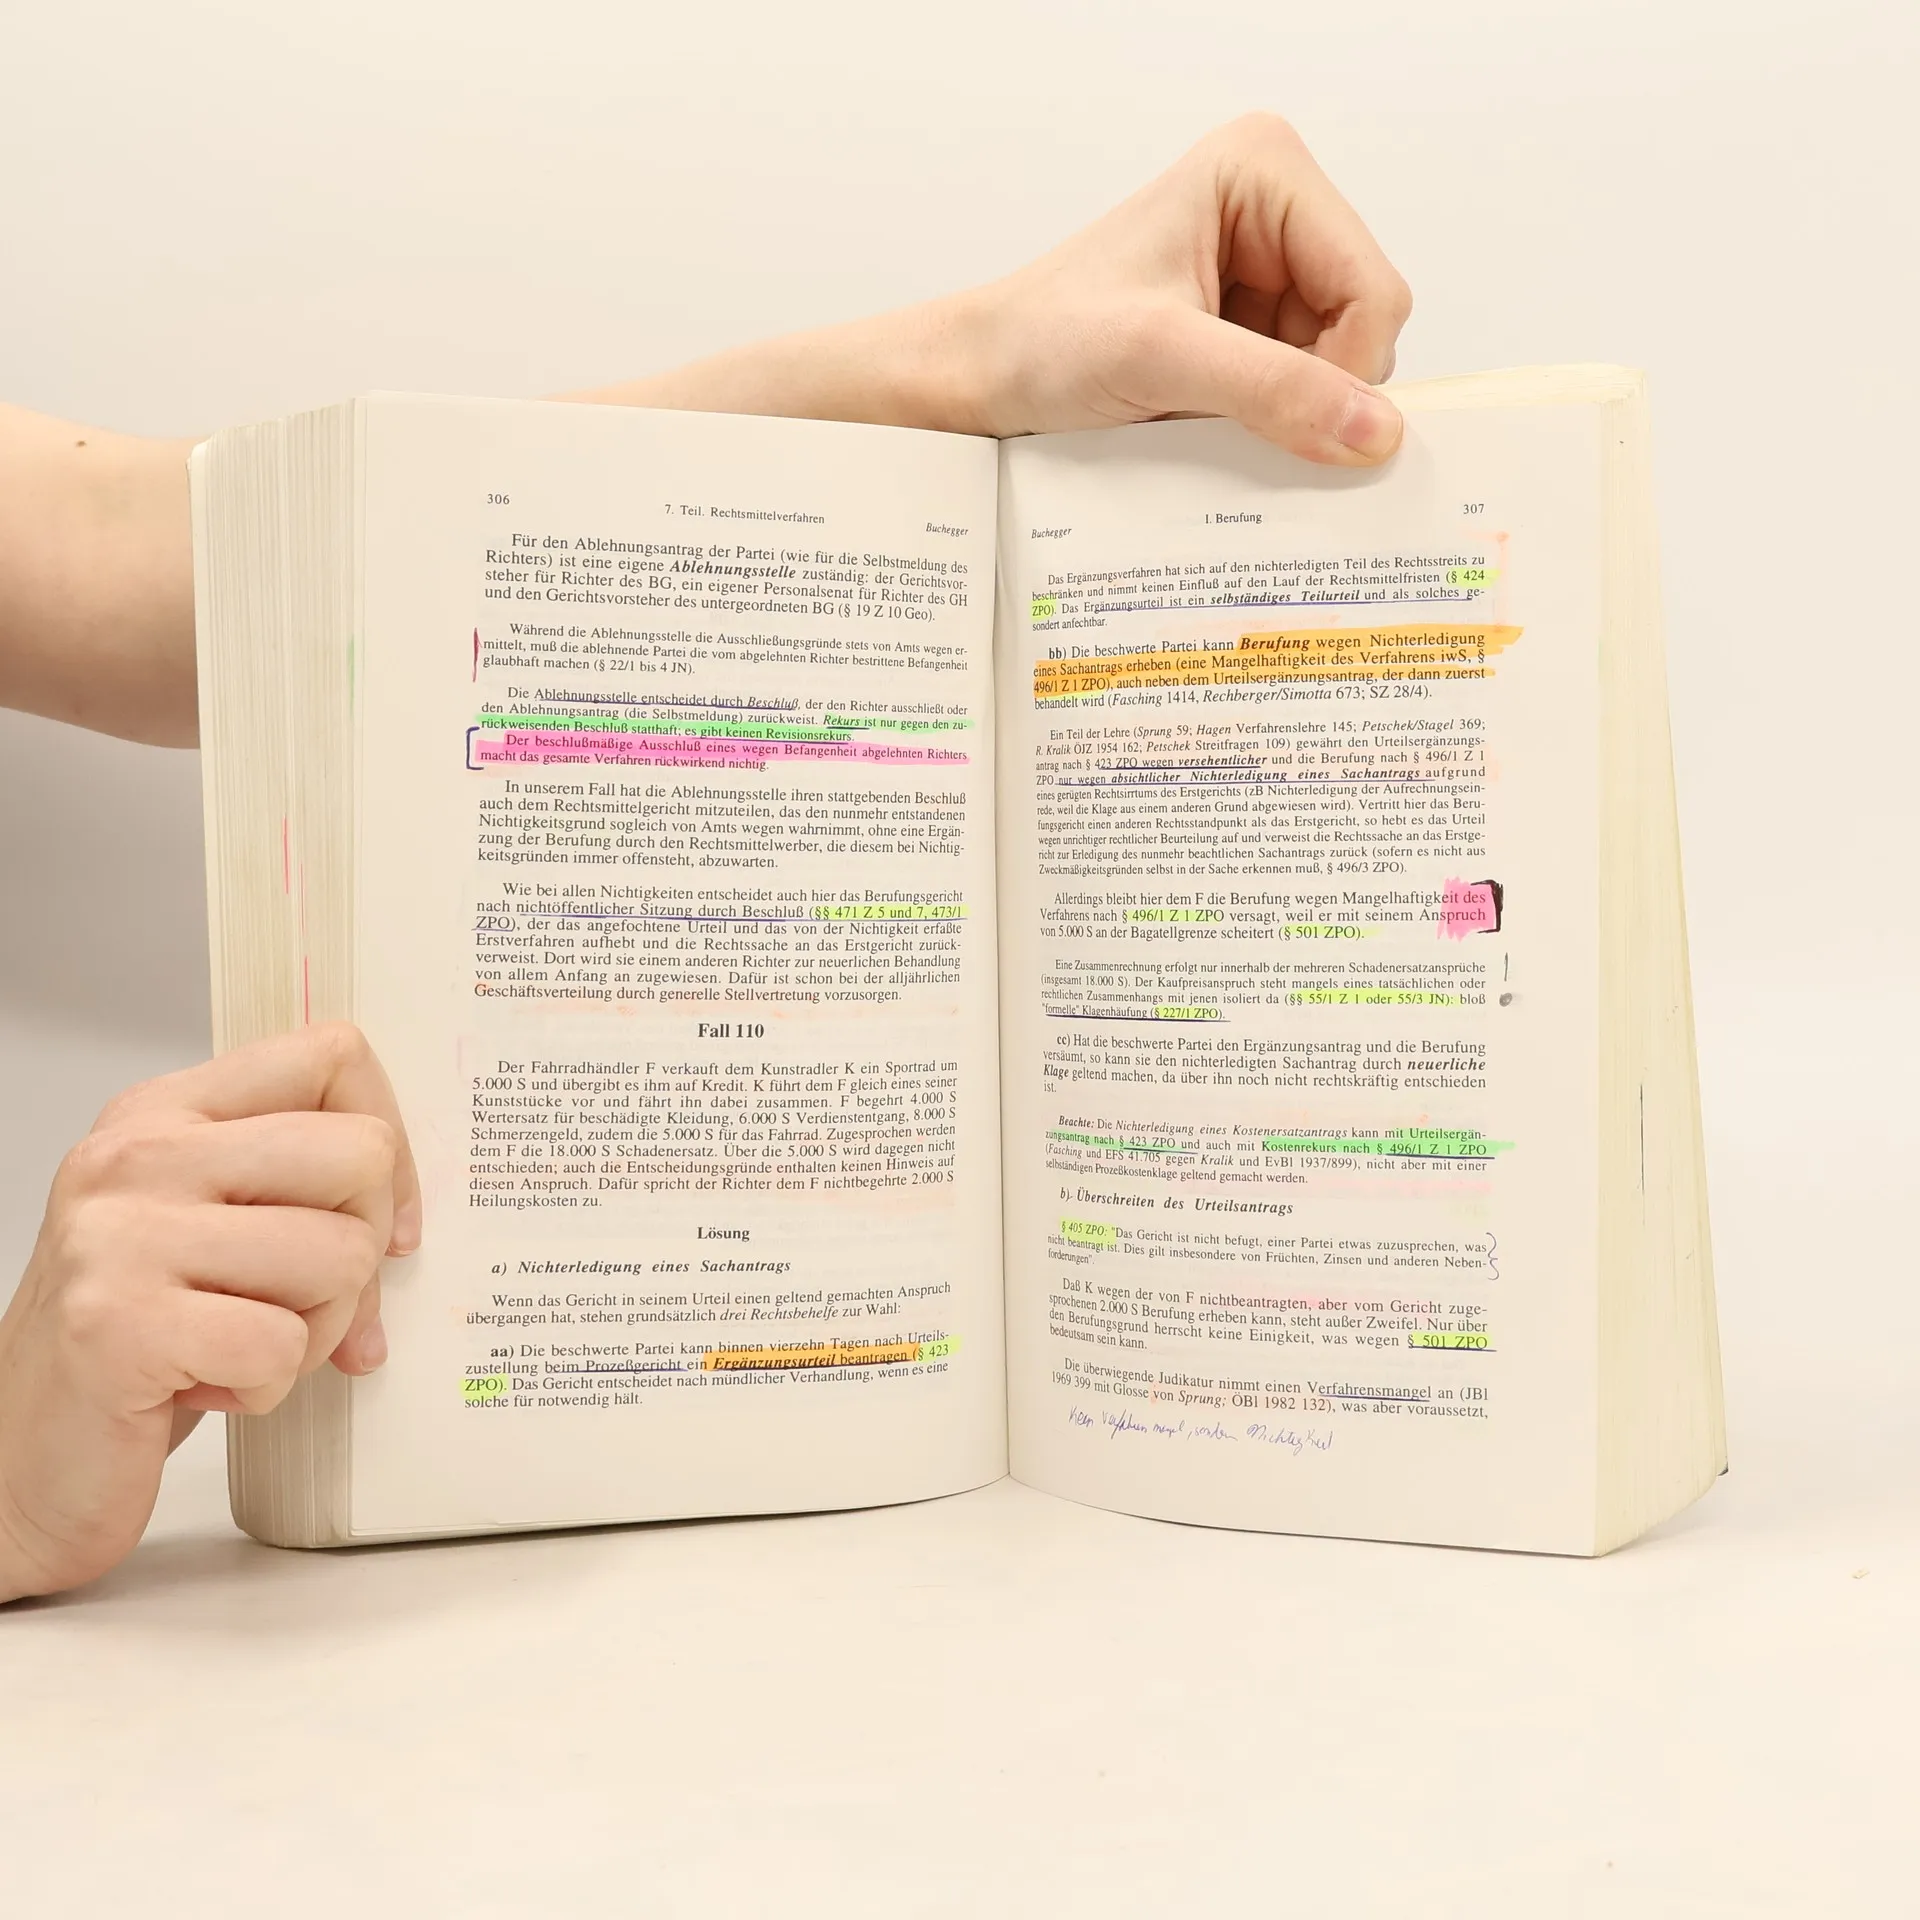 306
7. Teil. Rechtsmittelverfahren
Buchegger
Für den Ablehnungsantrag der Partei (wie für die Selbstmeldung des
Richters) ist eine eigene Ablehnungsstelle zuständig: der Gerichtsvor-
steher für Richter des BG, ein eigener Personalsenat für Richter des GH
und den Gerichtsvorsteher des untergeordneten BG (§ 19 Z 10 Geo).
Während die Ablehnungsstelle die Ausschließungsgründe stets von Amts wegen er-
mittelt, muß die ablehnende Partei die vom abgelehnten Richter bestrittene Befangenheit
glaubhaft machen (§ 22/1 bis 4 JN).
Die Ablehnungsstelle entscheidet durch Beschluß, der den Richter ausschließt oder
den Ablehnungsantrag (die Selbstmeldung) zurückweist. Rekurs ist nur gegen den zu-
rückweisenden Beschluß statthaft; es gibt keinen Revisionsrekurs.
Der beschlußmäßige Ausschluß eines wegen Befangenheit abgelehnten Richters
macht das gesamte Verfahren rückwirkend nichtig.
In unserem Fall hat die Ablehnungsstelle ihren stattgebenden Beschluß
auch dem Rechtsmittelgericht mitzuteilen, das den nunmehr entstandenen
Nichtigkeitsgrund sogleich von Amts wegen wahrnimmt, ohne eine Ergän-
zung der Berufung durch den Rechtsmittelwerber, die diesem bei Nichtig-
keitsgründen immer offensteht, abzuwarten.
Wie bei allen Nichtigkeiten entscheidet auch hier das Berufungsgericht
nach nichtöffentlicher Sitzung durch Beschluß (§§ 471 Z 5 und 7, 473/1
ZPO), der das angefochtene Urteil und das von der Nichtigkeit erfaßte
Erstverfahren aufhebt und die Rechtssache an das Erstgericht zurück-
verweist. Dort wird sie einem anderen Richter zur neuerlichen Behandlung
von allem Anfang an zugewiesen. Dafür ist schon bei der alljährlichen
Geschäftsverteilung durch generelle Stellvertretung vorzusorgen.
Fall 110
Der Fahrradhändler F verkauft dem Kunstradler K ein Sportrad um
5.000 S und übergibt es ihm auf Kredit. K führt dem F gleich eines seiner
Kunststücke vor und fährt ihn dabei zusammen. F begehrt 4.000 S
Wertersatz für beschädigte Kleidung, 6.000 S Verdienstentgang, 8.000 S
Schmerzengeld, zudem die 5.000 S für das Fahrrad. Zugesprochen werden
dem F die 18.000 S Schadenersatz. Über die 5.000 S wird dagegen nicht
entschieden; auch die Entscheidungsgründe enthalten keinen Hinweis auf
diesen Anspruch. Dafür spricht der Richter dem F nichtbegehrte 2.000 S
Heilungskosten zu.
Lösung
a) Nichterledigung eines Sachantrags
Wenn das Gericht in seinem Urteil einen geltend gemachten Anspruch
übergangen hat, stehen grundsätzlich drei Rechtsbehelfe zur Wahl:
aa) Die beschwerte Partei kann binnen vierzehn Tagen nach Urteils-
zustellung beim Prozeßgericht ein Ergänzungsurteil beantragen (§ 423
ZPO). Das Gericht entscheidet nach mündlicher Verhandlung, wenn es eine
solche für notwendig hält.
Buchegger
I. Berufung
307
Das Ergänzungsverfahren hat sich auf den nichterledigten Teil des Rechtsstreits zu
beschränken und nimmt keinen Einfluß auf den Lauf der Rechtsmittelfristen (§ 424
ZPO). Das Ergänzungsurteil ist ein selbständiges Teilurteil und als solches ge-
sondert anfechtbar.
bb) Die beschwerte Partei kann Berufung wegen Nichterledigung
eines Sachantrags erheben (eine Mangelhaftigkeit des Verfahrens iwS, §
496/1 Z 1 ZPO), auch neben dem Urteilsergänzungsantrag, der dann zuerst
behandelt wird (Fasching 1414, Rechberger/Simotta 673; SZ 28/4).
Ein Teil der Lehre (Sprung 59; Hagen Verfahrenslehre 145; Petschek/Stagel 369;
R. Kralik ÖJZ 1954 162; Petschek Streitfragen 109) gewährt den Urteilsergänzungs-
antrag nach § 423 ZPO wegen versehentlicher und die Berufung nach § 496/1 Z 1
ZPO nur wegen absichtlicher Nichterledigung eines Sachantrags aufgrund
eines gerügten Rechtsirrtums des Erstgerichts (zB Nichterledigung der Aufrechnungsein-
rede, weil die Klage aus einem anderen Grund abgewiesen wird). Vertritt hier das Beru-
fungsgericht einen anderen Rechtsstandpunkt als das Erstgericht, so hebt es das Urteil
wegen unrichtiger rechtlicher Beurteilung auf und verweist die Rechtssache an das Erstge-
richt zur Erledigung des nunmehr beachtlichen Sachantrags zurück (sofern es nicht aus
Zweckmäßigkeitsgründen selbst in der Sache erkennen muß, § 496/3 ZPO).
Allerdings bleibt hier dem F die Berufung wegen Mangelhaftigkeit des
Verfahrens nach § 496/1 Z 1 ZPO versagt, weil er mit seinem Anspruch
von 5.000 S an der Bagatellgrenze scheitert (§ 501 ZPO).
Eine Zusammenrechnung erfolgt nur innerhalb der mehreren Schadenersatzansprüche
(insgesamt 18.000 S). Der Kaufpreisanspruch steht mangels eines tatsächlichen oder
rechtlichen Zusammenhangs mit jenen isoliert da (§§ 55/1 Z 1 oder 55/3 JN): bloß
"formelle" Klagenhäufung (§ 227/1 ZPO).
cc) Hat die beschwerte Partei den Ergänzungsantrag und die Berufung
versäumt, so kann sie den nichterledigten Sachantrag durch neuerliche
Klage geltend machen, da über ihn noch nicht rechtskräftig entschieden
ist.
Beachte: Die Nichterledigung eines Kostenersatzantrags kann mit Urteilsergän-
zungsantrag nach § 423 ZPO und auch mit Kostenrekurs nach § 496/1 Z 1 ZPO
(Fasching und EFS 41.705 gegen Kralik und EvBl 1937/899), nicht aber mit einer
selbständigen Prozeßkostenklage geltend gemacht werden.
b) Überschreiten des Urteilsantrags
§ 405 ZPO: "Das Gericht ist nicht befugt, einer Partei etwas zuzusprechen, was
nicht beantragt ist. Dies gilt insbesondere von Früchten, Zinsen und anderen Neben-
forderungen".
Daß K wegen der von F nichtbeantragten, aber vom Gericht zuge-
sprochenen 2.000 S Berufung erheben kann, steht außer Zweifel. Nur über
den Berufungsgrund herrscht keine Einigkeit, was wegen § 501 ZPO
bedeutsam sein kann.
Die überwiegende Judikatur nimmt einen Verfahrensmangel an (JBl
1969 399 mit Glosse von Sprung; ÖBl 1982 132), was aber voraussetzt,
kein Verfahrensmangel, sondern Nichtigkeit